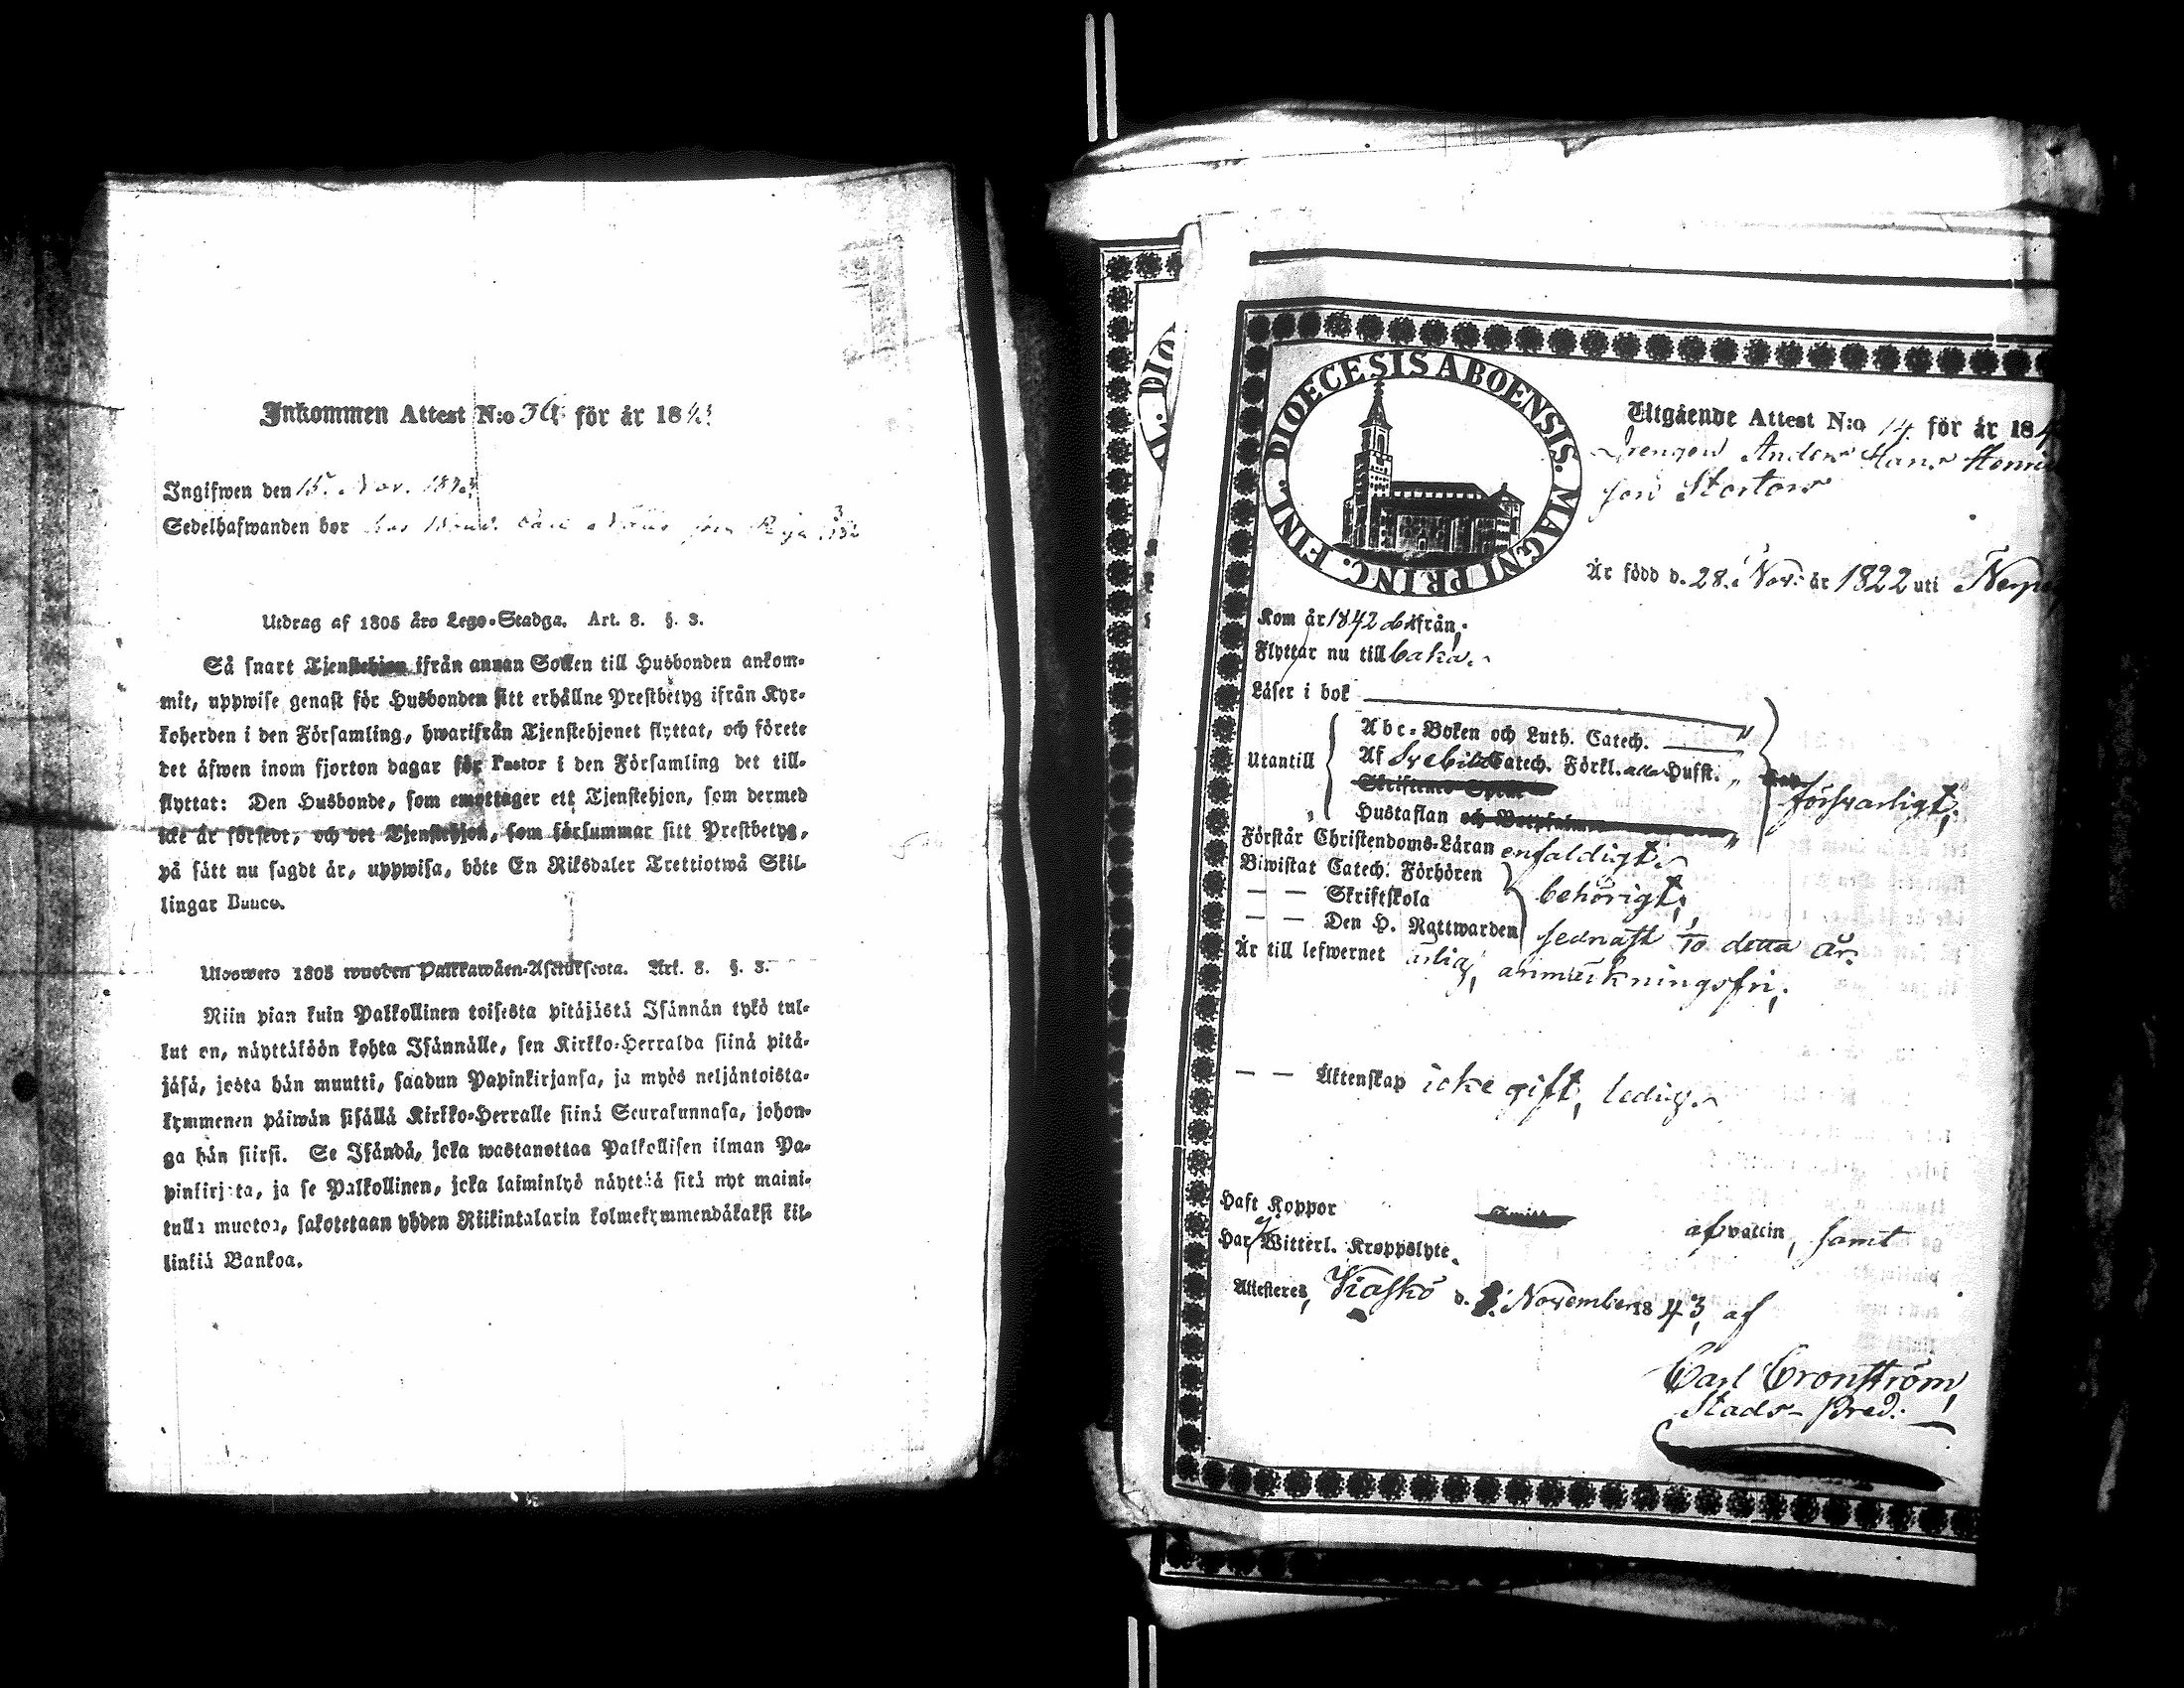 Inkommen Attest N:o 36 för år 1843
Ingifwen den 15. Nov. 1843
Sedelhafwanden bor hos
Utdrag af 1805 års Lego-Stadga. Art. 8. §. 3.
Så snart Tjenstehjon ifrån annan Socken till Husbonden ankom-
mit, uppwise genast för Husbonden sitt erhållne Prestbetyg ifrån Kyr-
koherden i den Församling, hwarifrån Tjenstehjonet flyttat, och förete
det äfwen inom fjorton dagar för Pastor i den Församling det till-
flyttat: Den Husbonde, som emottager ett Tjenstehjon, som dermed
icke är försedt, och det Tjenstehjon, som försummar sitt Prestbetyg,
på sätt nu sagdt är, uppwisa, böte En Riksdaler Trettiotwå Skil-
lingar Banco.
Ulosweto 1805 wuoden Palkkawäen-Asetuksesta. Art. 8. §. 3.
Niin pian kuin Palkollinen toisesta pitäjästä Isännän tykö tul-
lut on, näyttäköön kohta Isännälle, sen Kirkko-Herralda siinä pitä-
jäsä, josta hän muutti, saadun Papinkirjansa, ja myös neljäntoista-
kymmenen päiwän sisällä Kirkko-Herralle siinä Seurakunnasa, johon-
ga hän siirsi. Se Isändä, joka wastanottaa Palkollisen ilman Pa-
pinkirjata, ja se Palkollinen, joka laiminlyö näyttää sitä nyt maini-
tulla muotoa, sakotetaan yhden Riikintalarin kolmekymmendäkaksi kil-
linkiä Bankoa.
L. DIO
DIOECESIS ABOENSIS. MAGNI PRINC. FINL.
Utgående Attest N:o 14. för år 184
Drengen Anders Hans Henriks
son Stortors
Är född d. 28. Nov: år 1822 uti Nerpes
Kom år 1842 difrån;
Flyttar nu tillbaka.
Läser i bok
Utantill
Abc-Boken och Luth. Catech.
Af Svebilii Catech. Förkl. Hufst.
Skriftenes Språk
Hustaflan och Botpsalmer
försvarligt;
Förstår Christendoms-Läran enfaldigt.
Biwistat Catech. Förhören
— — Skriftskola
behörigt;
— — Den H. Nattwarden sednast 1/10 detta år.
Är till lefwernet ärlig, anmärkningsfri;
— — Äktenskap icke gift, ledig.
Haft Koppor af vaccin, samt
Har ej Witterl. Kroppslyte.
Attesteres, Kiaskö d. 8. November 1843, af
Carl Cronström,
Stads-Pred: